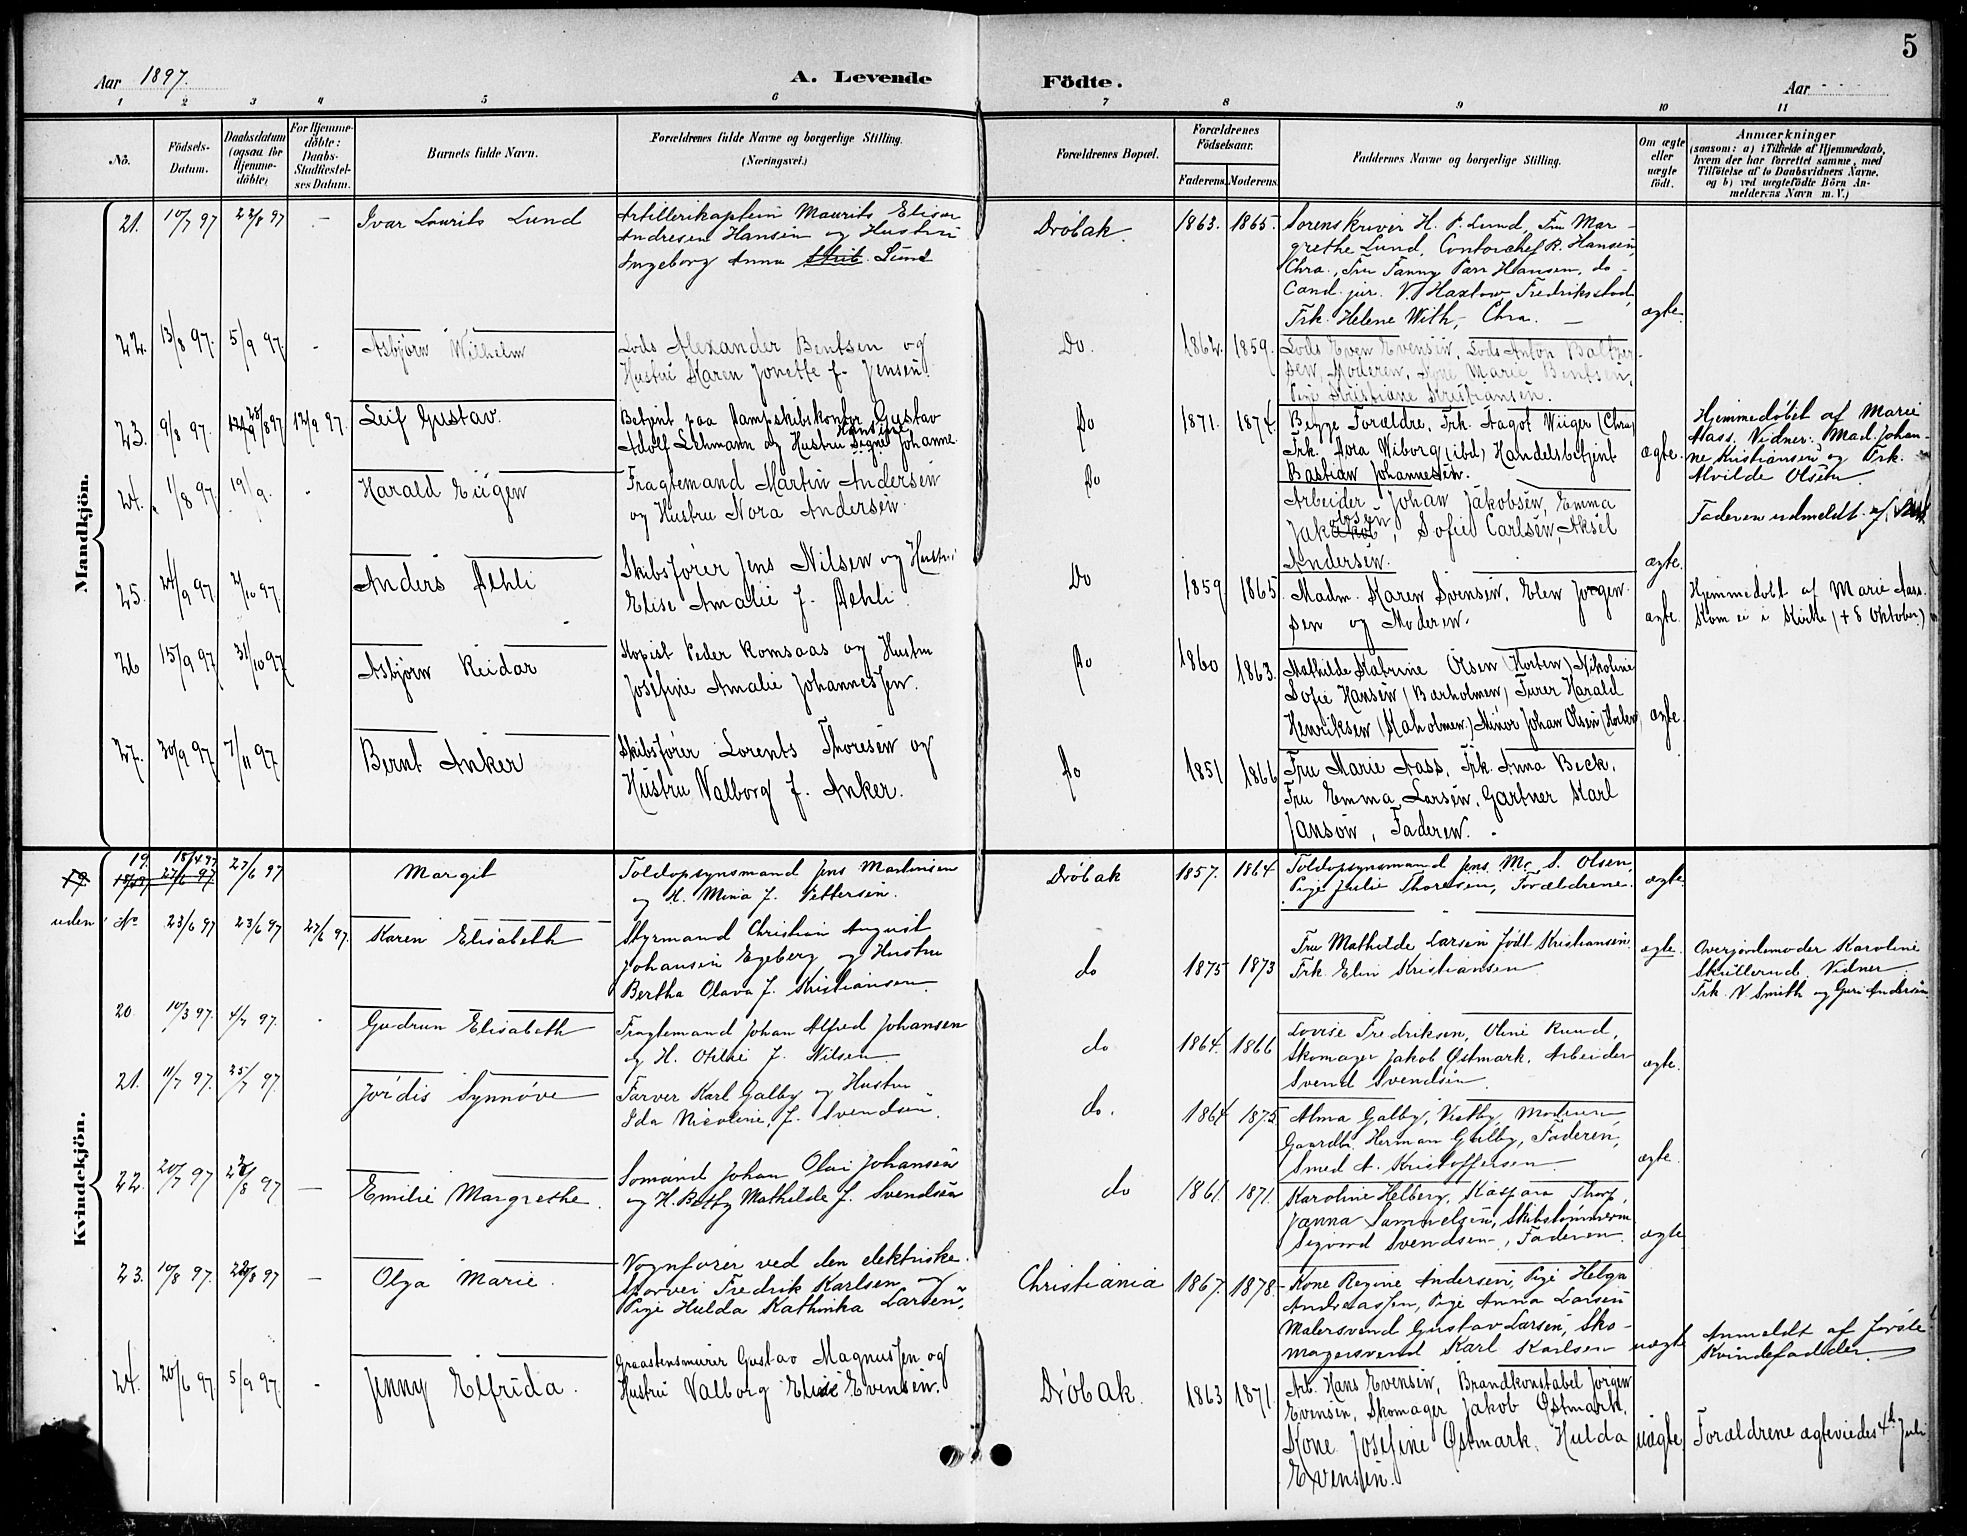 5
Aar 1897.
A. Levende
Födte.
Aar
1 2 3 4 5 6 7 8 9 10 11
No.
Födsels-
Datum.
Daabsdatum
(ogsaa for
Hjemme-
döbte)
For Hjemme-
döbte:
Daabs-
Stadfæstel-
ses Datum.
Barnets fulde Navn.
Forældrenes fulde Navne og borgerlige Stilling.
(Næringsvei.)
Forældrenes Bopæl.
Forældrenes
Födselsaar.
Faderens. Moderens.
Faddernes Navne og borgerlige Stilling.
Om ægte
eller
uægte
födt.
Anmærkninger
(saasom: a) i Tilfælde af Hjemmedaab,
hvem der har forrettet samme, med
Tilföielse af to Daabsvidners Navne.
og b) ved uægtefödte Börn An-
melderens Navn m. V.)
Mandkjön.
21. 10/7 97 22/8 97 - Ivar Laurits Lund
Artillerikaptein Maurits
Andresen Hansen og Hustru
Ingeborg Anna Lund
Dröbak. 1863. 1865.
Sorenskriver H. P. Lund, Fru Mar-
grethe Lund, Contorchef R. Hansen,
Chra., Fru Fanny Hansen, do -
Cand. jur. Fredriksstad,
Frk. Helene With, Chra. -
ægte.
22. 13/8 97. 5/9 97. - Asbjörn Wilhelm
Lods Alexander Bentsen og
Hustru Karen Jonette f. Jensen.
Do. 1862. 1859.
Lods Even Evensen, Lods Anton Baltzer-
sen, Moderen, Kone Marie Bentsen,
Pige Kristiane Kristiansen.
23. 9/8 97. 28/8 97 12/9 97. Leif Gustav.
Betjent paa Dampskibskontor Gustav
Adolf Lehmann og Hustru Signe Johanne
Do 1871. 1874.
Begge Forældre, Frk. Aagot Wiiger (Chra)
Frk. Dora Wiborg (ibd) Handelsbetjent
Bastian Johannesen.
ægte.
Hjemmedöbt af Marie
Aass. Vidner: Mad. Johan-
ne Kristiansen og Frk.
Alvilde Olsen
24. 1/8 97 19/9. - Harald Eugen
Fragtemand Martin Andersen
og Hustru Nora Andersen.
Do
Arbeider Johan Jakobsen, Emma
Jakobsen, Sofie Carlsen, Aksel
Andersen.
ægte.
Faderen udmeldt af
25. 24/9 97 2/10 97 Anders Aehli
Skibsförer Jens Nilsen og Hustru
Elise Amalie f. Aehli.
Do 1859 1865
Madm. Karen Svensen, Elen Jorgen-
sen og Moderen.
ægte.
Hjemmedöbt af Marie Aass.
Kom ei i Kirke († 8 Oktober.)
26 15/9 97 31/10 97 Asbjörn Reidar
Kopist Peder Romsaas og Hustru
Josefine Amalie Johannessen.
Do 1860 1863.
Mathilde Katrine Olsen (Horten) Nikoline
Sofie Hansen (Barholmen) Furer Harald
Henriksen (Kaholmen) Minör Johan Olsen (Horten)
ægte.
27. 30/9 97 7/11 97 Bernt Anker
Skibsförer Lorents Thoresen og
Hustru Valborg f. Anker.
Do 1851 1866
Fru Marie Aass, Frk. Anna Beck.
Fru Emma Larsen, Gartner Karl
Janson, Faderen.
Kvindekjön.
19. 18/4 97 27/6 97 Margit
Toldopsynsmand Jens Martinsen
og H. Mina f. Pettersen.
Dröbak 1857. 1864
Toldopsynsmand Jens Mc. S. Olsen,
Pige Julie Thoresen, Forældrene.
ægte.
uden No 23/6 97 23/6 97 27/6 97. Karen Elisabeth
Styrmand Christian August
Johansen Egeberg og Hustru
Bertha Olava f. Kristiansen.
do 1875 1873
Fru Mathilde Larsen födt Kristiansen,
Frk. Elin Kristiansen
ægte.
Overjordemoder Karoline
Skullerud. Vidner
Frk. N. Smith og Guri Andersen
20 10/3 97. 4/7 97. - Gudrun Elisabeth
Fragtemand Johan Alfred Johansen
og H. Otilie f. Nilsen.
do 1864. 1866
Lovise Fredriksen, Oline Ruud,
Skomager Jakob Östmark, Arbeider
Svend Svendsen.
ægte.
21. 11/7 97. 25/7 97. Jördis Synnöve
Farver Karl Galby og Hustru
Ida Nicoline, f. Svendsen.
do. 1864 1875
Alma Galby, Vestby, Moderen
Gaardbr. Herman Galby, Faderen,
Smed A. Kristoffersen
ægte.
22. 20/7 97 /8 97 — Emilie Margrethe.
Somand Johan Olai Johansen
og H. Betty Mathilde f. Svendsen
do 1861. 1871.
Karoline Helberg, Kaspara Thorp,
Janna Samuelsen, Skibstömmerm.
Sigvard Svendsen, Faderen.
ægte
23. 10/8 97. /8 97 — Olga Marie.
Vognförer ved den elektriske
Sporvei Fredrik Karlsen og
Pige Hulda Kathinka Larsen.
Christiania 1867. 1878.
Kone Regine Andersen, Pige Helga
Andreassen, Pige Anna Larsen
Malersvend Gustav Larsen, Sko-
magersvend Karl Karlsen
uægte
Anmeldt af förste
Kvindefadder.
24. 20/6 97 5/9 97. - Jenny Elfrida.
Graastensmurer Gustav Magnussen og
Hustru Valborg Elise Evensen.
Dröbak. 1863 1871.
Arb. Hans Evensen, Brandkonstabel Jörgen
Evensen, Skomager Jakob Östmark,
Kone Josefine Östmark, Hulda
Evensen.
uægte
Forældrene ægteviedes 4de Juli